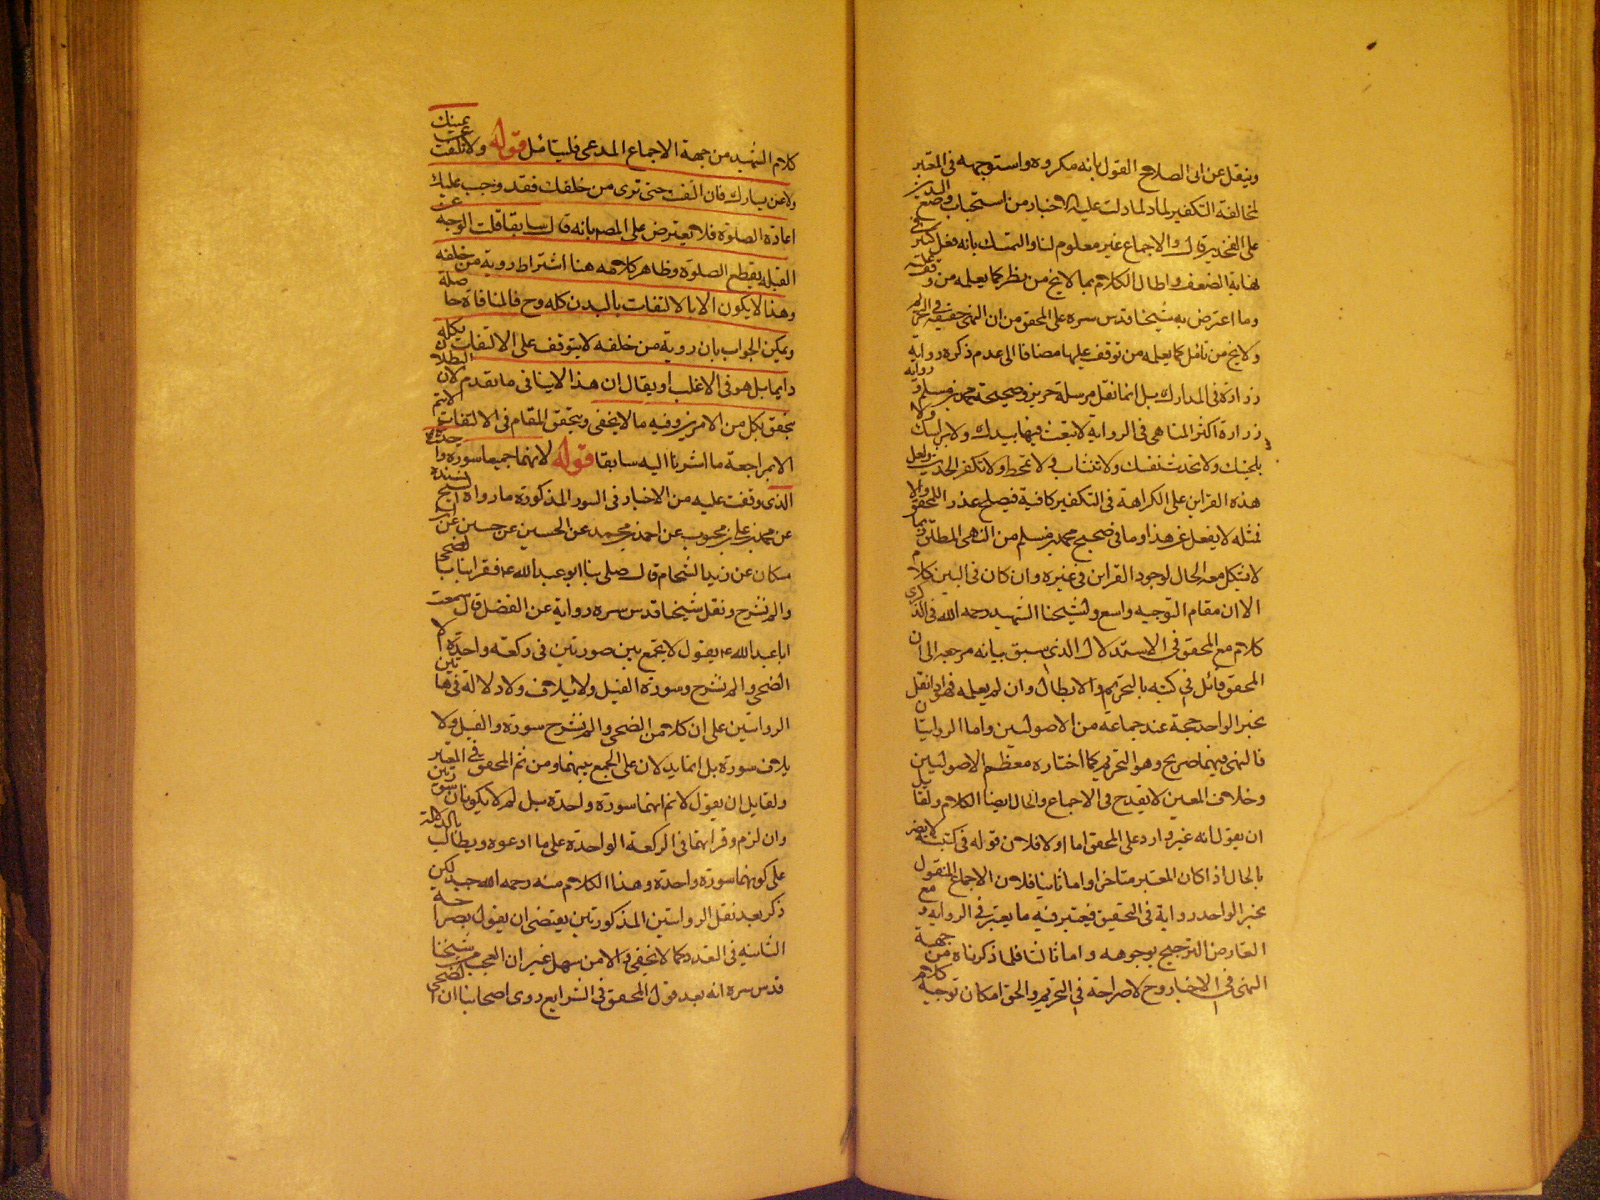 وينقل عن ابى الصلاح القول بانه مكروه واستوجهه فى المعتبر
لمخالفة التكفير لما دلت عليه الاخبار من استحباب وضع اليدين
على الفخذين قال والاجماع غير معلوم لنا والتمسك بانه فعل كثير فى
نهاية الضعف واطال الكلام بما لا يخ من نظر كما يعلمه من وقف عليه
وما اعترض به شيخنا قدس سره على المحقق من ان النهى حقيقة فى التحريم
ولا يخ من تامل كما يعلمه من توقف عليها مضافا الى عدم ذكره رواية
زرارة فى المدارك بل انما نقل مرسلة حريز وصحيحة محمد بن مسلم و رواية
زرارة اكثر المناهى فى الرواية لا تعبث فيها بيدك ولا براسك ولا
بلحيتك ولا تحدث نفسك ولا تتثاب ولا تمتخط ولا تكفر الحديث ولعل
هذه القراين على الكراهة فى التكفير كافية فيصلح عذر اللمحقق والا
فمثله لا يفعل غير هذا وما فى صحيح محمد بن مسلم من النهى المطلق ربما
لا يشكل معه الحال لوجود القراين فى غيره وان كان فى البين كلام
الا ان مقام التوجيه واسع ولشيخنا الشهيد رحمه الله فى الذكرى
كلام مع المحقق فى الاستدلال الذى سبق بيانه مرجعه الى ان
المحقق قائل فى كتبه بالتحريم والابطال وان لم يعلمه فهو اذ انقل
بخبر الواحد حجة عند جماعة من الاصوليين واما الروايتان
فالنهى فيهما صريح وهو التحريم كما اختاره معظم الاصوليين
وخلاف المعين لا يقدح فى الاجماع والحال ايضا الكلام ولقائل
ان يقول انه غير وارد على المحقق اما اولا فلان قوله فى كتبه لا يضر
بالحال اذا كان المعتبر متاخرا واما ثانيا فلان الاجماع المنقول
بخبر الواحد رواية فى التحقيق فيعتبر فيه ما يعتبر فى الرواية و مع
التعارض الترجيح بوجوهه واما ثالثا فلما ذكرناه من جهة
النهى فى الاخبار وح لا صراحة فى التحريم والحق امكان توجيه كلام
كلام الشهيد من جهة الاجماع المدعى فليتامل قوله ولا تلتفت عن يمينك
ولا عن يسارك فان التفت حتى ترى من خلفك فقد وجب عليك
اعادة الصلوة فلا يعترض على المصم بانه قال سابقا قلت الوجه عن
القبلة يقطع الصلوة وظاهر كلامه هنا اشتراط روية من خلفه
وهذا لا يكون الا بالالتفات بالبدن كله وح فالمنافاة حاصلة
ويمكن الجواب بان روية من خلفه لا يتوقف على الالتفات بكله
دايما بل هو فى الاغلب او يقال ان هذا لا ينافى ما تقدم لان البطلان
يتحقق بكل من الامرين وفيه ما لا يخفى وتحقق المقام فى الالتفات لا يتم
الا بمراجعة ما اشرنا اليه سابقا قوله لانهما جميعا سورة واحدة
الذى وقفت عليه من الاخبار فى السور المذكورة ما رواه الشيخ بسنده
عن محمد بن على بن محبوب عن احمد بن محمد عن الحسين عن حسين عن ابن
مسكان عن زيد الشحام قال صلى بنا ابو عبد الله ع فقرا بنا بالضحى
والم نشرح ونقل شيخنا قدس سره رواية عن الفضل قال سمعت
ابا عبد الله ع يقول لا يجمع بين صورتين فى ركعة واحدة الا
الضحى والم نشرح وسورة الفيل ولايلاف ولا دلالة فى هاتين
الروايتين على ان كلا من الضحى والم نشرح سورة والفيل ولا
يلاف سورة بل انما يدلان على الجمع بينهما ومن ثم المحقق فى المعتبر
ولقايل ان يقول لا نم انهما سورة واحدة بل لم لا يكونان سورتين
وان لزم وقرائهما فى الركعة الواحدة على ما ادعوه ويطالب بالدلالة
على كونهما سورة واحدة وهذا الكلام منه رحمه الله جيد لكن
ذكر بعد نقل الروايتين المذكورتين يقتضى ان يقول بصراحة
الثانيه فى العدد كما لا يخفى والامر سهل غير ان العجب من شيخنا
قدس سره انه بعد قول المحقق فى الشرايع روى اصحابنا ان الضحى